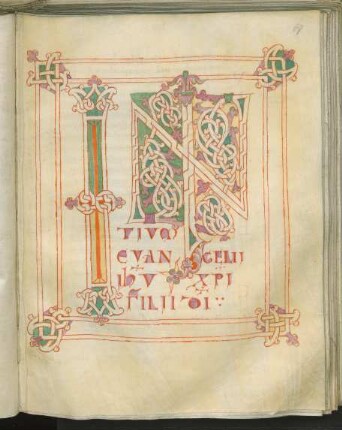 IN
TIUM
EVAN GELII
IHU XPI
FILII DI